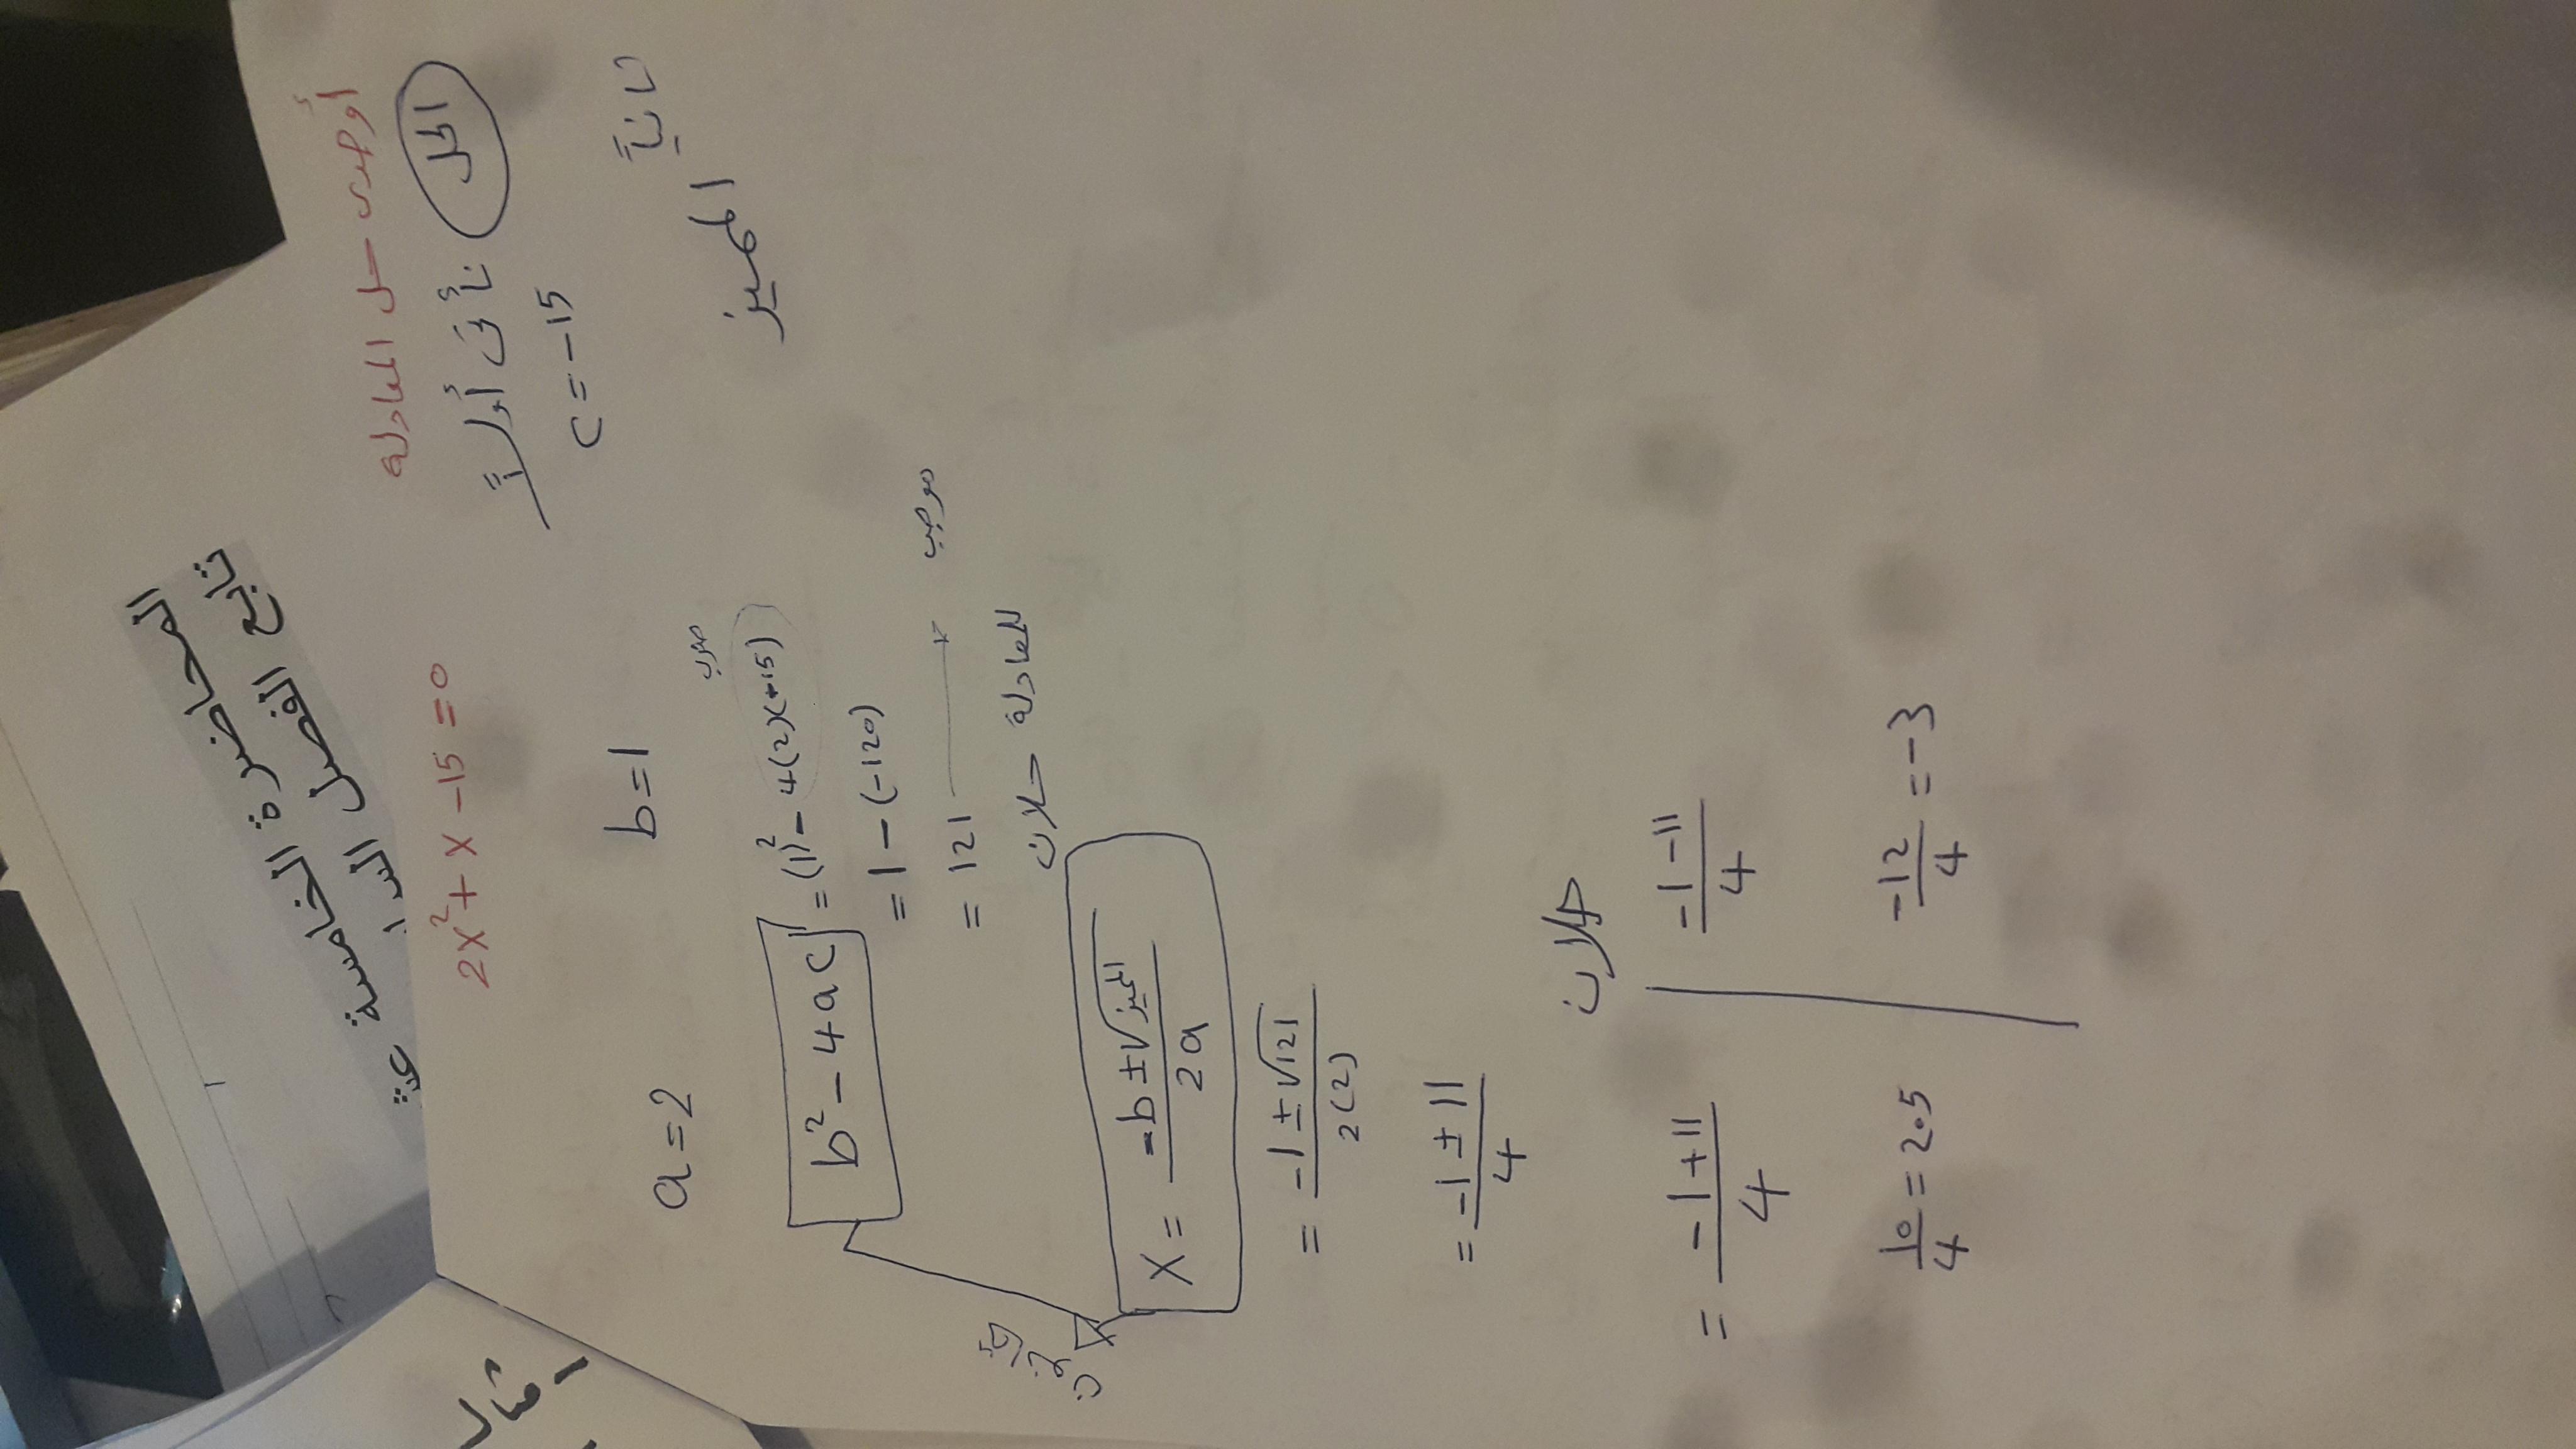 المحاضرة الخامسة
تابع الفصل
مثال
أوجدى حل المعادلة 2x² + x - 15 = 0
الحل
نأتى أولاً
a = 2 b = 1 c = -15
ثانياً
المميز
ضرب
b² - 4ac = (1)² - 4(2)(-15)
= 1 - (-120)
= 121 موجب
حلان للمعادلة
x = -b ± √المميز / 2a
= -1 ± √121 / 2(2)
= -1 ± 11 / 4
حلان
= -1 + 11 / 4 | -1 - 11 / 4
10/4 = 2.5 | -12/4 = -3